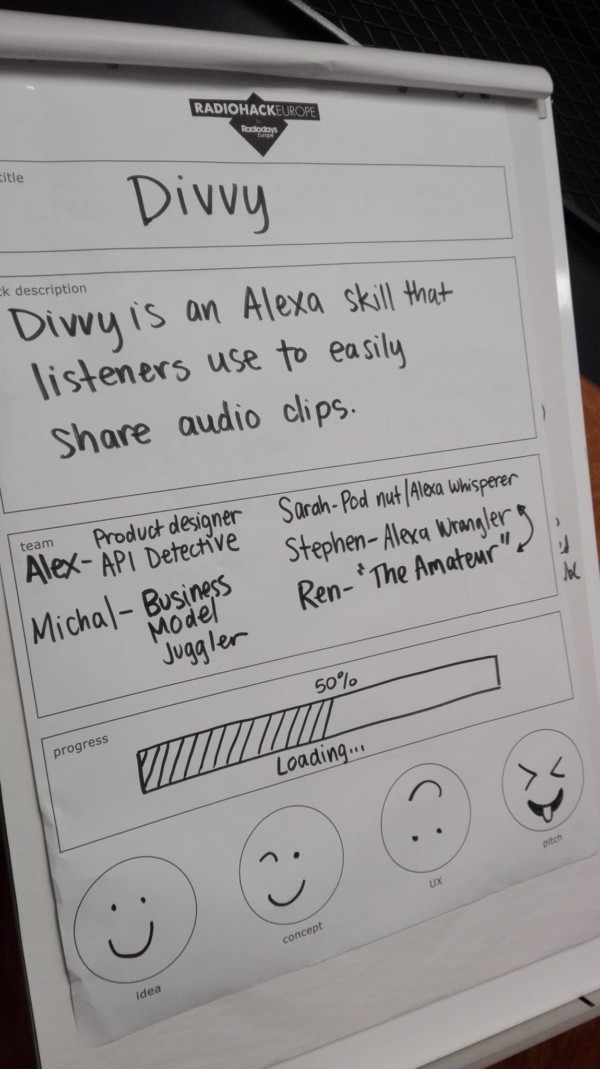 RADIOHACKEUROPE
Radiodays
Europe
title
Divvy
k description
Divvy is an Alexa skill that
listeners use to easily
share audio clips.
team
Alex- Product designer
API Detective
Michal- Business
Model
Juggler
Sarah-Pod nut/Alexa Whisperer
Stephen-Alexa Wrangler
Ren- "The Amateur"
progress
50%
Loading...
idea
concept
UX
pitch